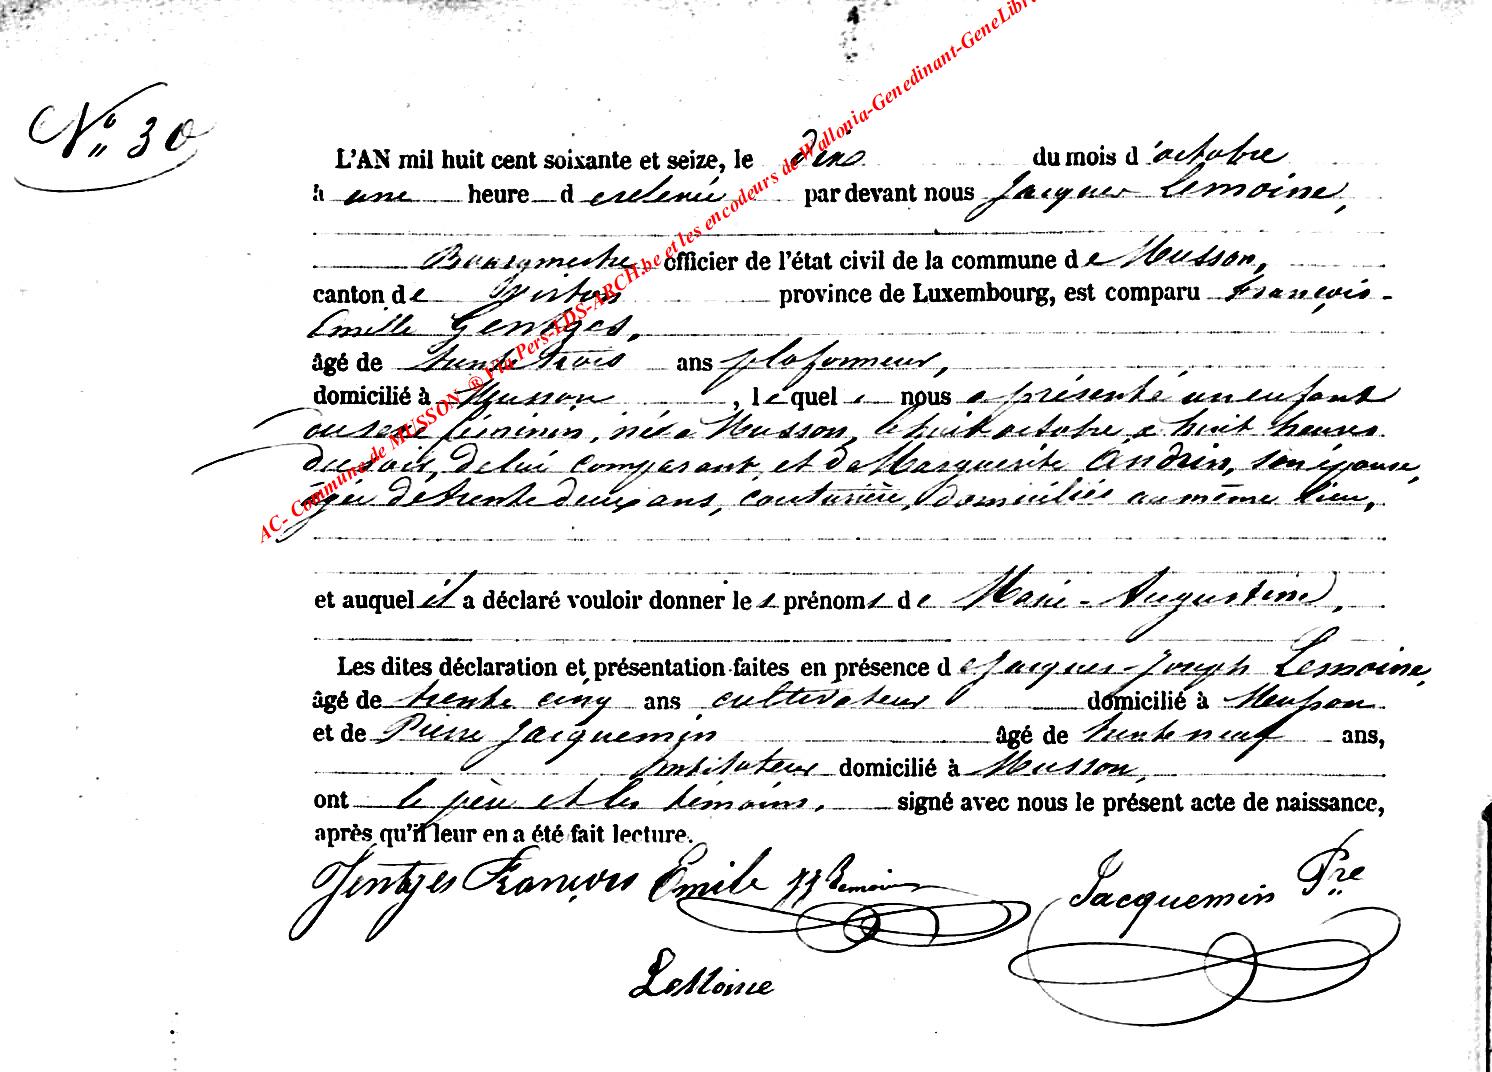 N° 30
L'AN mil huit cent soixante et seize, le dix du mois d'octobre
à une heure de relevée par devant nous Jacques Lemoine,
Bourgmestre officier de l'état civil de la commune de Musson,
canton de Virton province de Luxembourg, est comparu François-
Emille Gentges,
âgé de trente trois ans plafonneur,
domicilié à Musson, lequel nous a présenté un enfant
du sexe féminin, née à Musson, le huit octobre, à huit heures
du soir, de lui comparant et de Marguerite Andrin, son épouse,
âgée de trente deux ans, couturière, domiciliée au même lieu,
et auquel il a déclaré vouloir donner les prénoms de Marie-Augustine,
Les dites déclaration et présentation faites en présence de Jacques-Joseph Lemoine,
âgé de trente cinq ans cultivateur domicilié à Musson
et de Pierre Jacquemin âgé de trente neuf ans,
instituteur domicilié à Musson,
ont le père et les témoins, signé avec nous le présent acte de naissance,
après qu'il leur en a été fait lecture.
Jentges François Emile JJ Lemoine Jacquemin Pre
Lemoine
AC- Commune de MUSSON ® Via Pers-LDS-ARCH.be et les encodeurs de Wallonia-Genedinant-GeneLibr